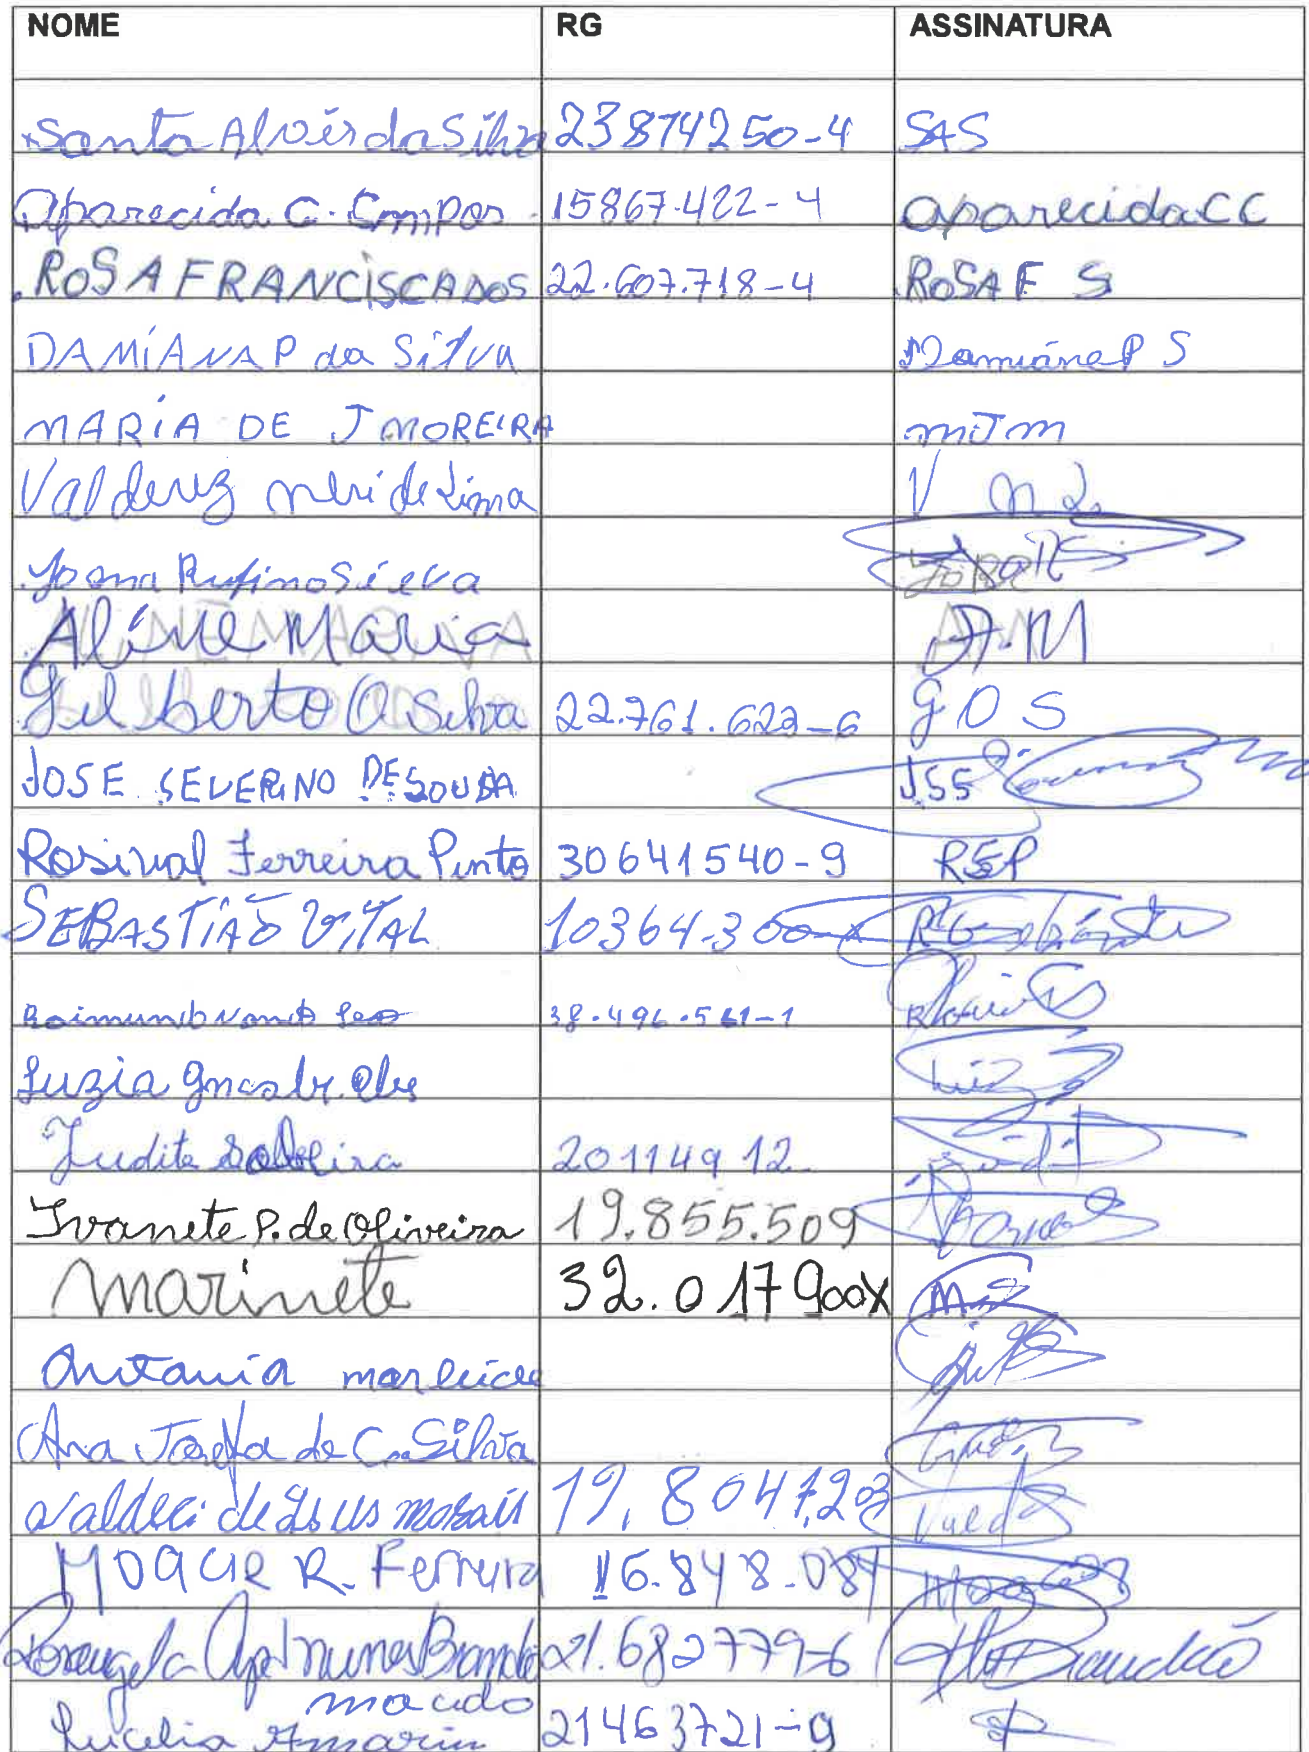 NOME RG ASSINATURA
Santa Alves da Silva 23874250-4 SAS
Aparecida C. Cmpos 15867.422-4 aparecida CC
ROSA FRANCISCA DOS 22.607.718-4 ROSA F S
DAMIANA P da Silva Damiana P S
MARIA DE J MOREIRA mJm
Valderez neri de Lima V n L
Joana Rufino Silva
Aline Maria A.M
Gilberto O Silva 22.761.623-6 g O S
JOSE SEVERINO DE SOUDA JSS
Rosival Ferreira Pinto 30641540-9 RFP
SEBASTIÃO VITAL 10364.300-x
38.496.561-1
Luzia
Judite 201149 12
Ivanete P. de Oliveira 19.855.509
Marinete 32.017900X
Antania
Ana Josefa de C. Silva
Valdeci de Jesus morais 19.8047,203 Vald
MOACIR R. Ferreira 16.848.084
Rosangela Apd nunes Brandão 21.682779-6 Brandão
macedo
Lucelia Amorim 21463721-9